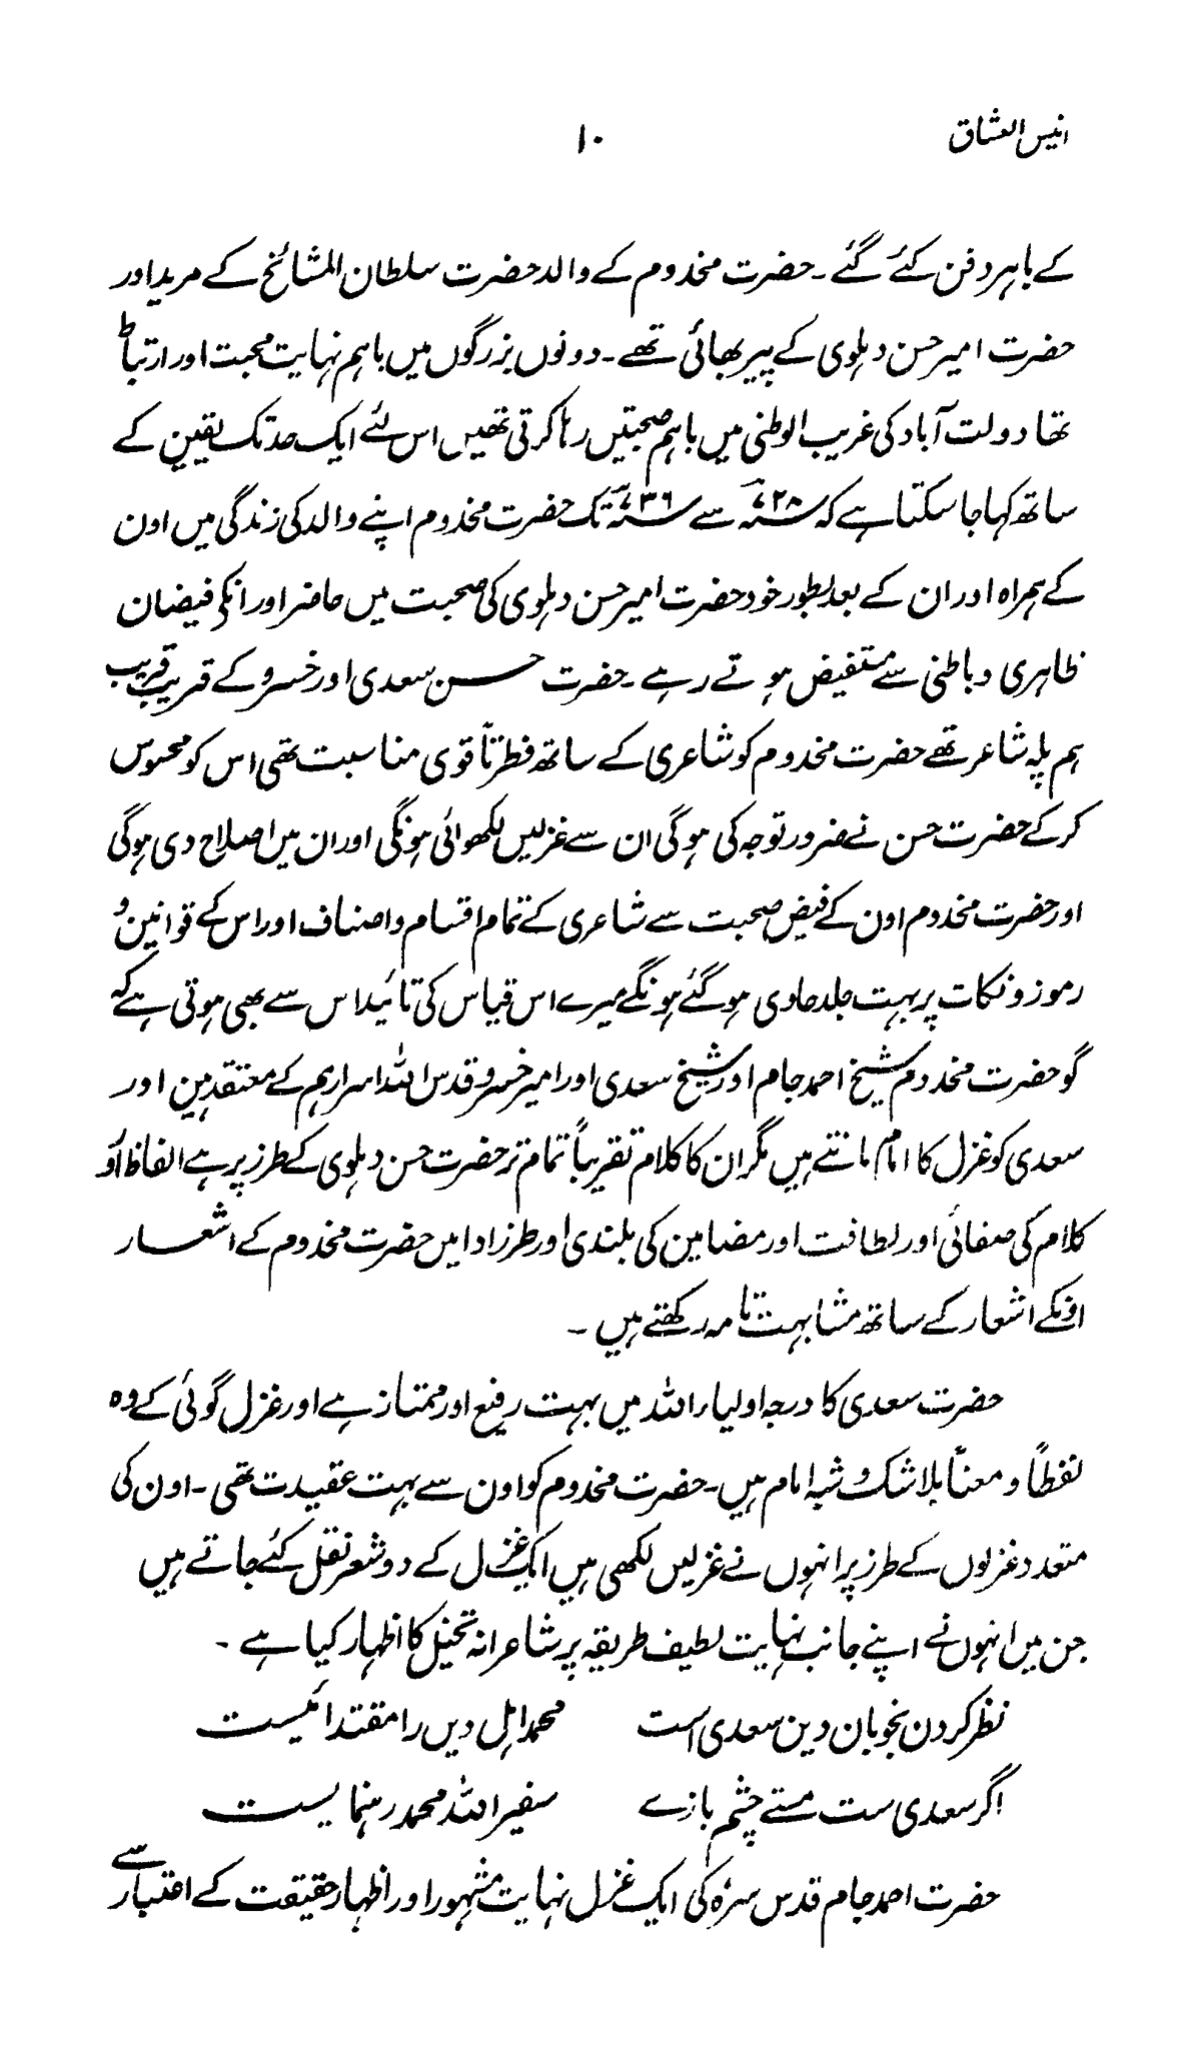 انیس العشاق
۱۰
کے باہر دفن کئے گئے ۔ حضرت مخدوم کے والد حضرت سلطان المشائخ کے مرید اور
حضرت امیر حسن دہلوی کے پیر بھائی تھے ۔ دونوں بزرگوں میں باہم نہایت محبت اور ارتباط
تھا دولت آباد کی غریب الوطنی میں باہم صحبتیں رہا کرتی تھیں اس لئے ایک حد تک یقین کے
ساتھ کہا جا سکتا ہے کہ سنہ ۷۲۸ سے سنہ ۷۳۶ تک حضرت مخدوم اپنے والد کی زندگی میں اون
کے ہمراہ اور ان کے بعد بطور خود حضرت امیر حسن دہلوی کی صحبت میں حاضر اور انکی فیضان
ظاہری و باطنی سے مستفیض ہوتے رہے ۔ حضرت حسن سعدی اور خسرو کے قریب قریب
ہم پلہ شاعر تھے حضرت مخدوم کو شاعری کے ساتھ فطرتاً قوی مناسبت تھی اس کو محسوس
کر کے حضرت حسن نے ضرور توجہ کی ہوگی ان سے غزلیں لکھوائی ہونگی اور ان میں اصلاح دی ہوگی
اور حضرت مخدوم اون کے فیض صحبت سے شاعری کے تمام اقسام و اصناف اور اس کے قوانین و
رموز و نکات پر بہت جلد حاوی ہو گئے ہونگے میرے اس قیاس کی تائید اس سے بھی ہوتی ہے کہ
گو حضرت مخدوم شیخ احمد جام اور شیخ سعدی اور امیر خسرو قدس اللہ اسرارہم کے معتقد ہیں اور
سعدی کو غزل کا امام مانتے ہیں مگر ان کا کلام تقریباً تمام تر حضرت حسن دہلوی کے طرز پر ہے الفاظ اور
کلام کی صفائی اور لطافت اور مضامین کی بلندی اور طرز ادا میں حضرت مخدوم کے اشعار
انکے اشعار کے ساتھ مشابہت تامہ رکھتے ہیں ۔
حضرت سعدی کا درجہ اولیاء اللہ میں بہت رفیع اور ممتاز ہے اور غزل گوئی کے وہ
لفظاً و معناً بلا شک و شبہ امام ہیں ۔ حضرت مخدوم کو اون سے بہت عقیدت تھی ۔ اون کی
متعدد غزلوں کے طرز پر انہوں نے غزلیں لکھی ہیں ایک غزل کے دو شعر نقل کئے جاتے ہیں
جن میں انہوں نے اپنے جانب نہایت لطیف طریقہ پر شاعرانہ تخیل کا اظہار کیا ہے ۔
نظر کردن بخوبان دین سعدی است محمد اہل دیں را مقتدائیست
اگر سعدی ست مستے چشم بازے سفیر اللہ محمد رہنمایست
حضرت احمد جام قدس سرہٗ کی ایک غزل نہایت مشہور اور اظہار حقیقت کے اعتبار سے